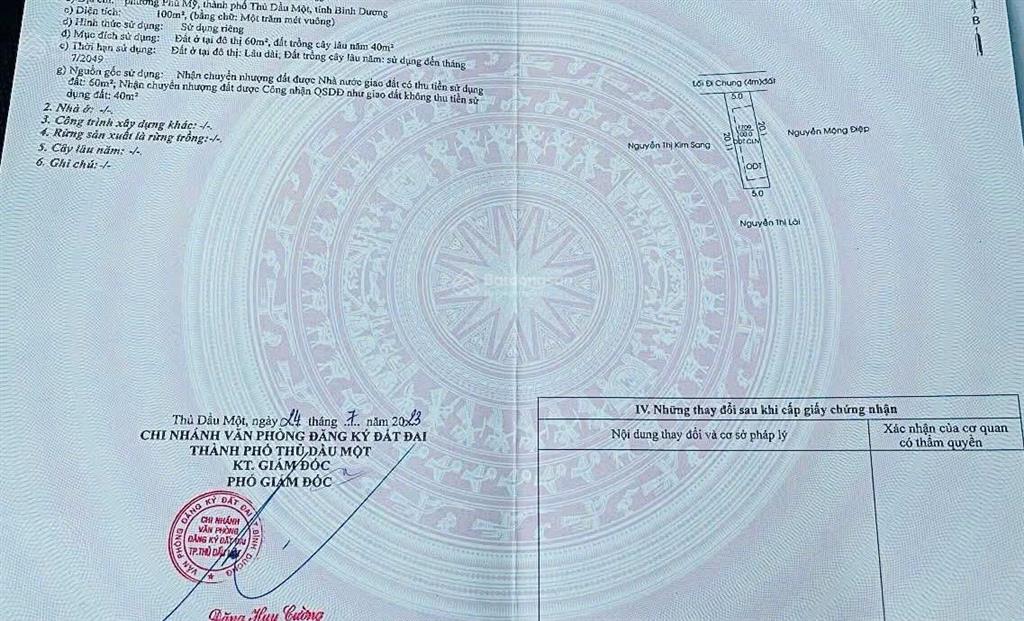 phường Phú Mỹ, thành phố Thủ Dầu Một, tỉnh Bình Dương
c) Diện tích: 100m², (bằng chữ: Một trăm mét vuông)
d) Hình thức sử dụng: Sử dụng riêng
đ) Mục đích sử dụng: Đất ở tại đô thị 60m², đất trồng cây lâu năm 40m²
e) Thời hạn sử dụng: Đất ở tại đô thị: Lâu dài; Đất trồng cây lâu năm: sử dụng đến tháng
7/2049
g) Nguồn gốc sử dụng: Nhận chuyển nhượng đất được Nhà nước giao đất có thu tiền sử dụng
đất: 60m²; Nhận chuyển nhượng đất được Công nhận QSDĐ như giao đất không thu tiền sử
dụng đất: 40m²
2. Nhà ở: -/-.
3. Công trình xây dựng khác: -/-.
4. Rừng sản xuất là rừng trồng:-/-.
5. Cây lâu năm: -/-.
6. Ghi chú:-/-
B
Lối Đi Chung (4m)đất
5.0
Nguyễn Thị Kim Sang
20.1
20.1
Nguyễn Mộng Điệp
ODT
5.0
Nguyễn Thị Lài
Batdongsan
Thủ Dầu Một, ngày 24 tháng 7 năm 2023
CHI NHÁNH VĂN PHÒNG ĐĂNG KÝ ĐẤT ĐAI
THÀNH PHỐ THỦ DẦU MỘT
KT. GIÁM ĐỐC
PHÓ GIÁM ĐỐC
VĂN PHÒNG ĐĂNG KÝ ĐẤT ĐAI T. BÌNH DƯƠNG
CHI NHÁNH
VĂN PHÒNG
ĐĂNG KÝ ĐẤT ĐAI
TP.THỦ DẦU MỘT
Đặng Huy Cường
IV. Những thay đổi sau khi cấp giấy chứng nhận
Nội dung thay đổi và cơ sở pháp lý
Xác nhận của cơ quan
có thẩm quyền